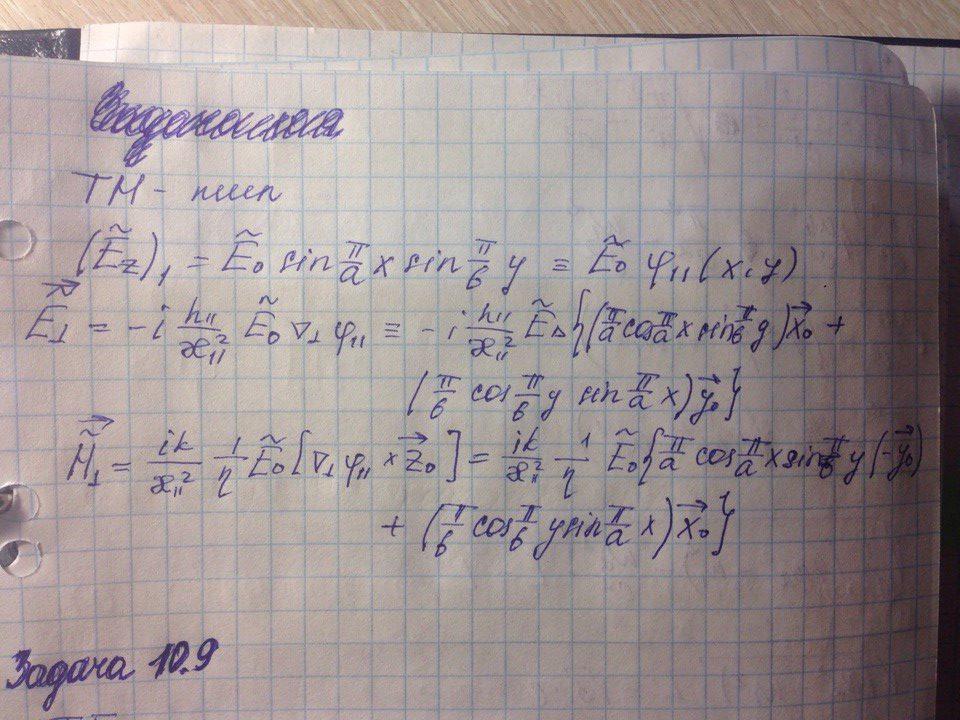 TM - тип
(Ẽz)₁ = Ẽ₀ sin π/a x sin π/b y ≡ Ẽ₀ φ₁₁(x,y)
Ẽ⃗⊥ = -i h₁₁/æ₁₁² Ẽ₀ ∇⊥ φ₁₁ ≡ -i h₁₁/æ₁₁² Ẽ₀ {(π/a cos π/a x sin π/b y) x⃗₀ +
(π/b cos π/b y sin π/a x) y⃗₀}
H̃⃗⊥ = ik/æ₁₁² 1/η Ẽ₀ [∇⊥ φ₁₁ × z⃗₀] = ik/æ₁₁² 1/η Ẽ₀ {π/a cos π/a x sin π/b y (-y⃗₀)
+ (π/b cos π/b y sin π/a x) x⃗₀}
Задача 10.9